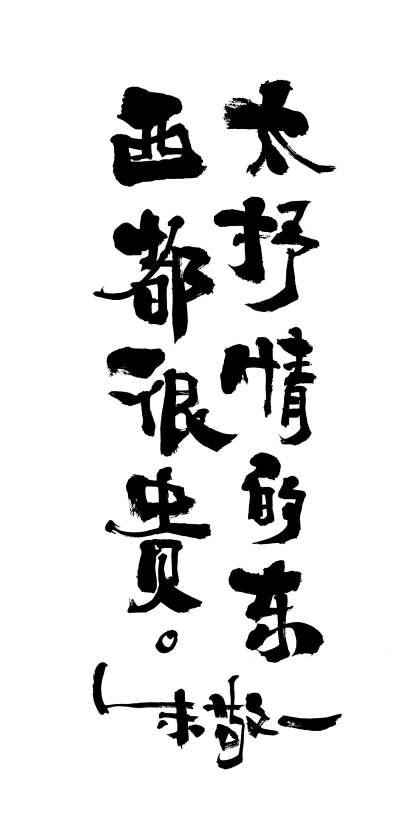 太抒情的东
西都很贵。
朱敬一